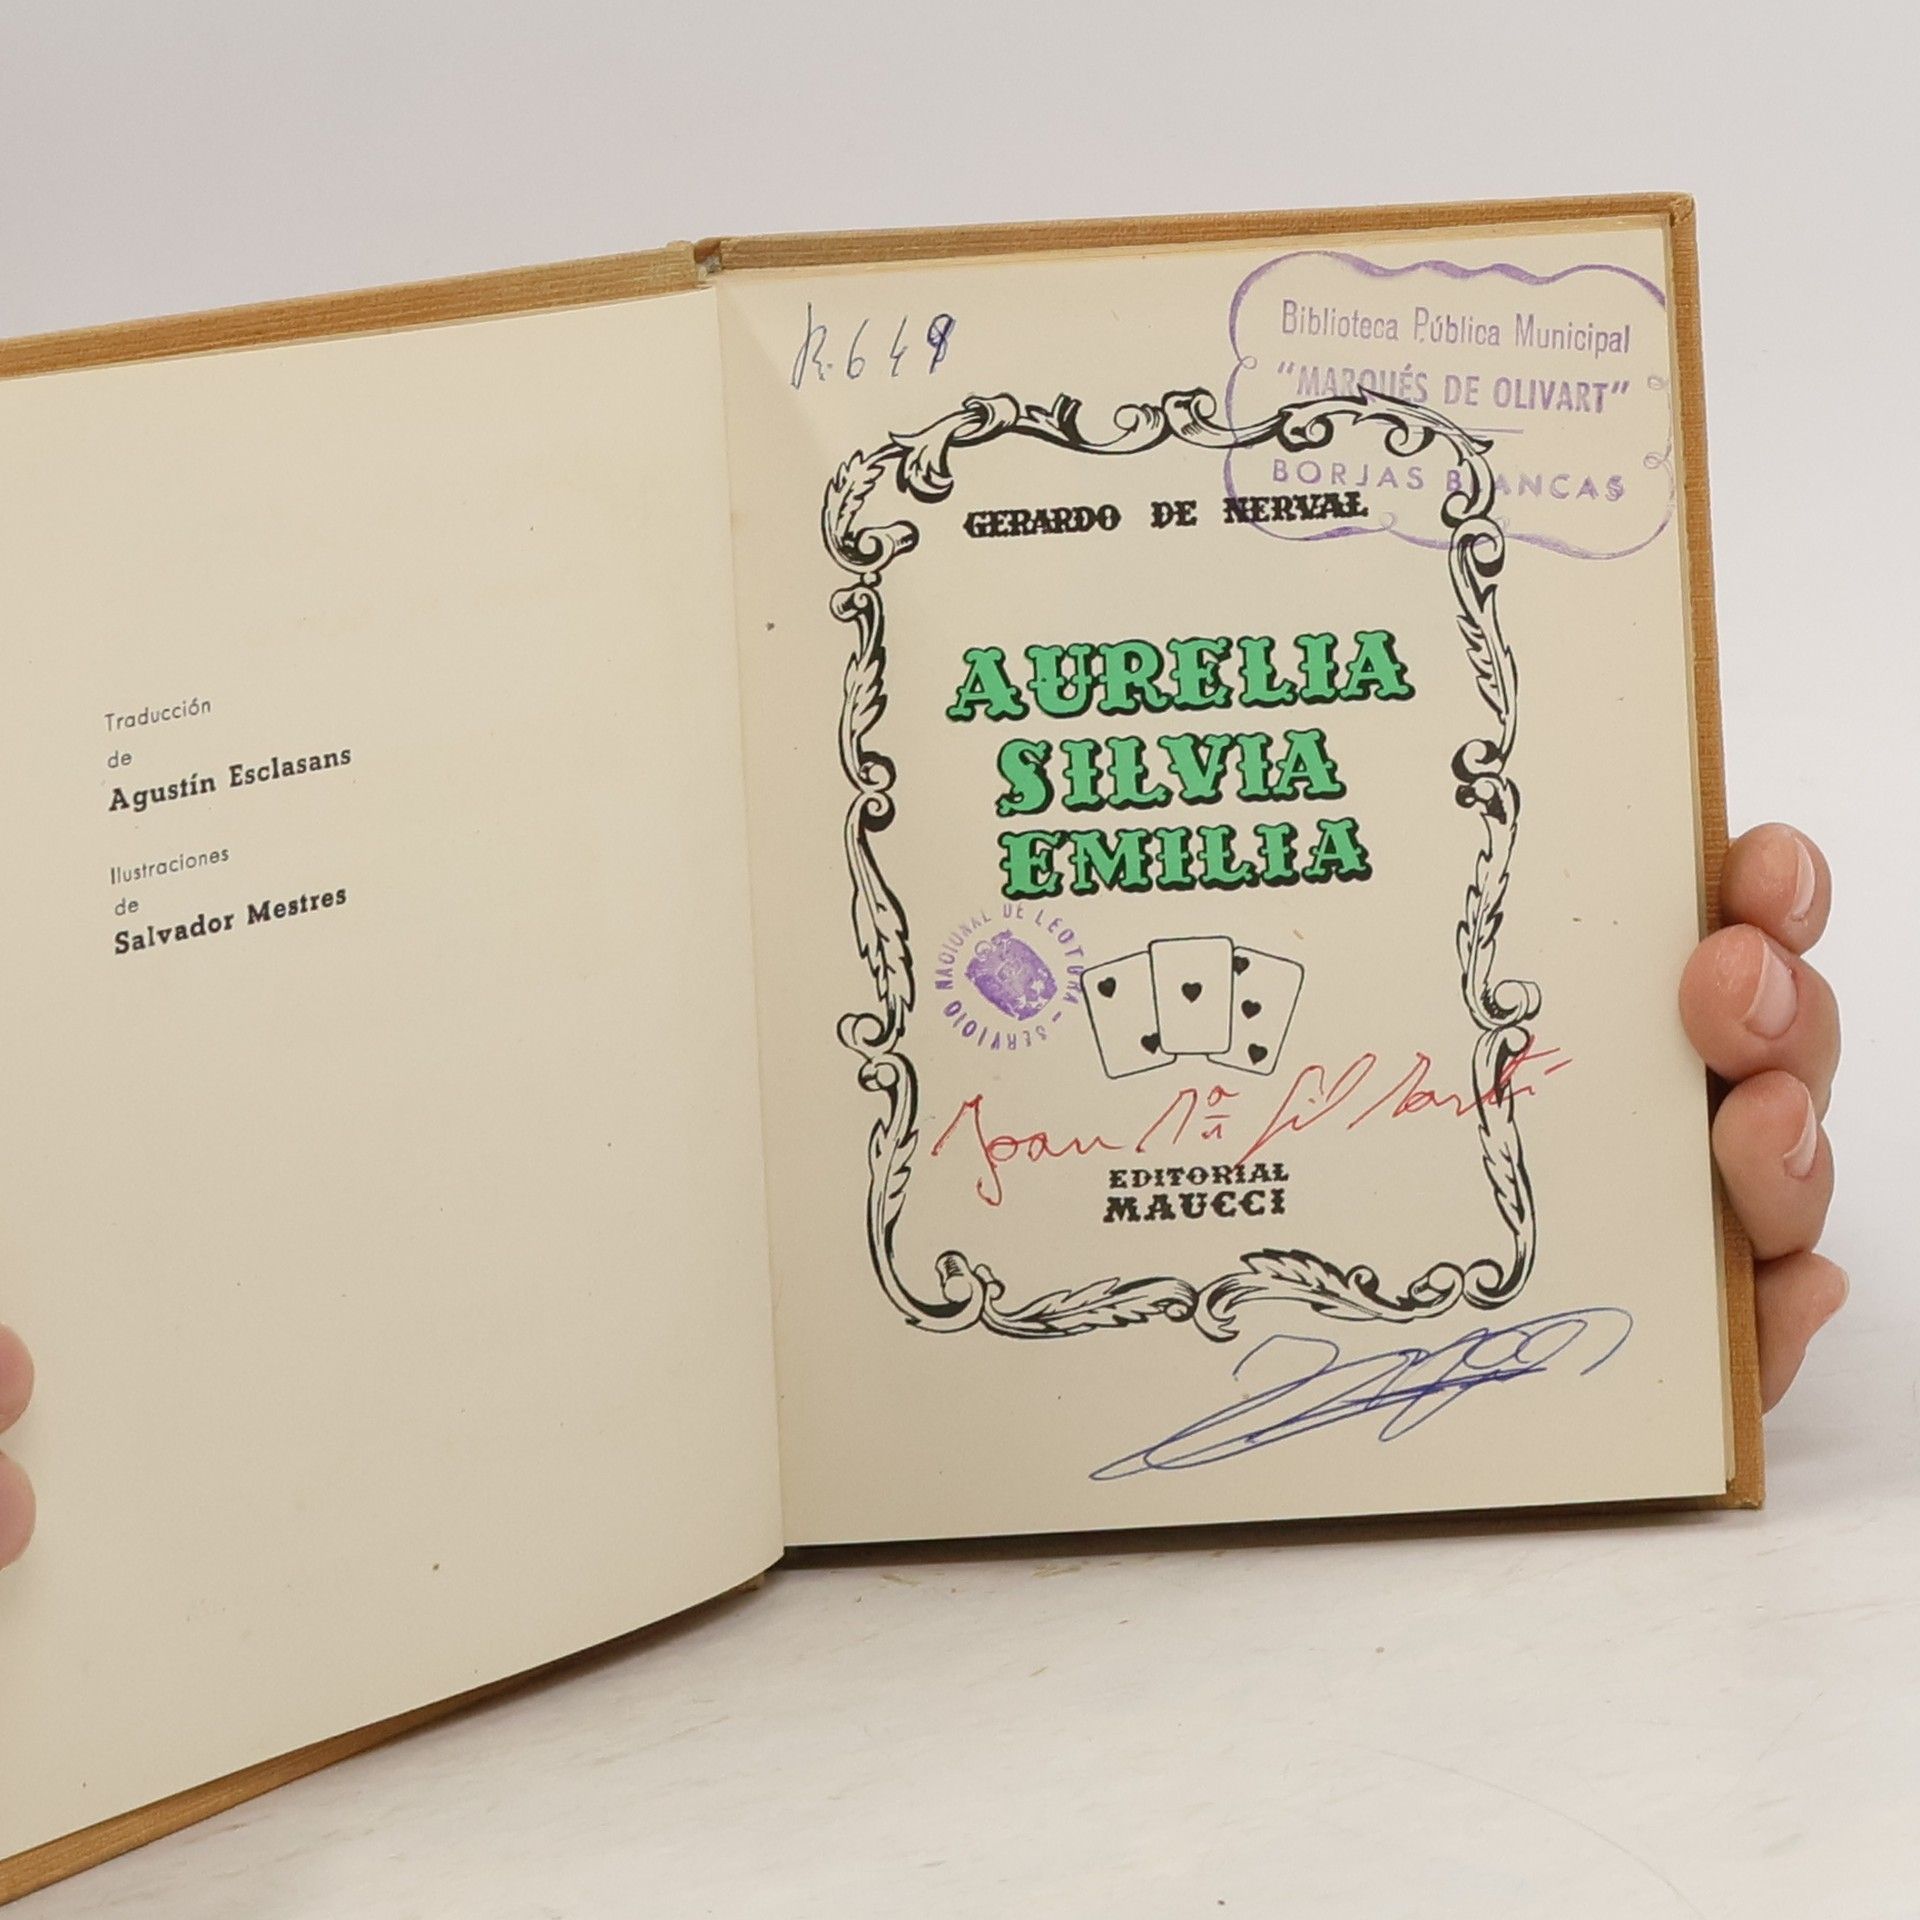 Traducción
de
Agustín Esclasans
Ilustraciones
de
Salvador Mestres
R. 648
Biblioteca Pública Municipal
"MARQUÉS DE OLIVART"
BORJAS BLANCAS
GERARDO DE NERVAL
AURELIA
SILVIA
EMILIA
SERVICIO NACIONAL DE LECTURA -
Joan Mª Gil Martí
EDITORIAL
MAUCCI